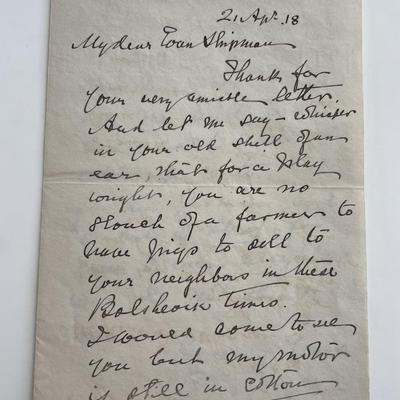 21 Apr. 18
My dear Evan Shipman
Thanks for
your very amiable letter.
And let me say - whisper
in your old shell of an
ear, that for a Play
wright, you are no
slouch of a farmer to
have pigs to sell to
your neighbors in these
Bolshevik Times.
I would come to see
you but my motor
is still in cotton